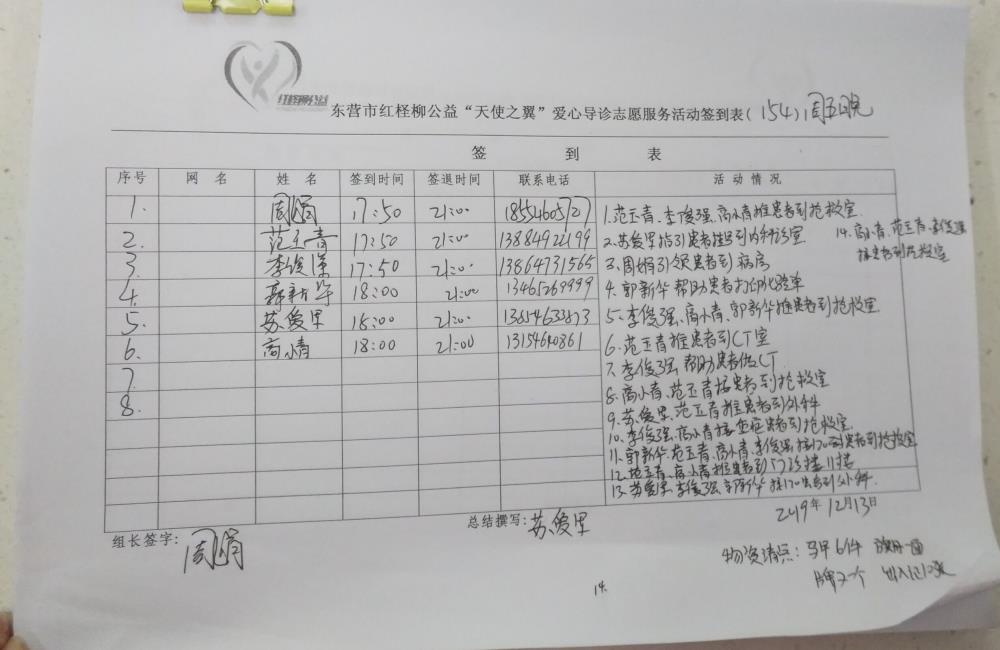 红柽柳公益
东营市红柽柳公益“天使之翼”爱心导诊志愿服务活动签到表(154)周五院
签 到 表
序号 网 名 姓 名 签到时间 签退时间 联系电话 活 动 情 况
1. 周娟 17:50 21:00 18554605727
2. 范玉青 17:50 21:00 13884922199
3. 李俊强 17:50 21:00 13864731565
4. 郭新华 18:00 21:00 13465269999
5. 苏爱里 18:00 21:00
6. 高小青 18:00 21:00
7
8.
1.范玉青、李俊强、高小青推患者到抢救室.
2.苏爱里指引患者推到内科诊室
3.周娟引领患者到病房
4.郭新华帮助患者打印化验单
5.李俊强、高小青、郭新华推患者到抢救室.
6.范玉青推患者到CT室
7.李俊强帮助患者做CT
8.高小青、范玉青接患者到抢救室
9.苏爱里、范玉青推患者到外科
10.李俊强、高小青接患者到抢救室.
11.郭新华、范玉青、高小青、李俊强接120患者到抢救室
12.范玉青、高小青推患者到门诊楼11楼
13.苏爱里、李俊强、郭新华接120患者到外科.
14.高小青、范玉青、李俊强
接患者到抢救室
2019年12月13日
组长签字:周娟
总结撰写:苏爱里
物资清点:马甲6件
牌2个
14.